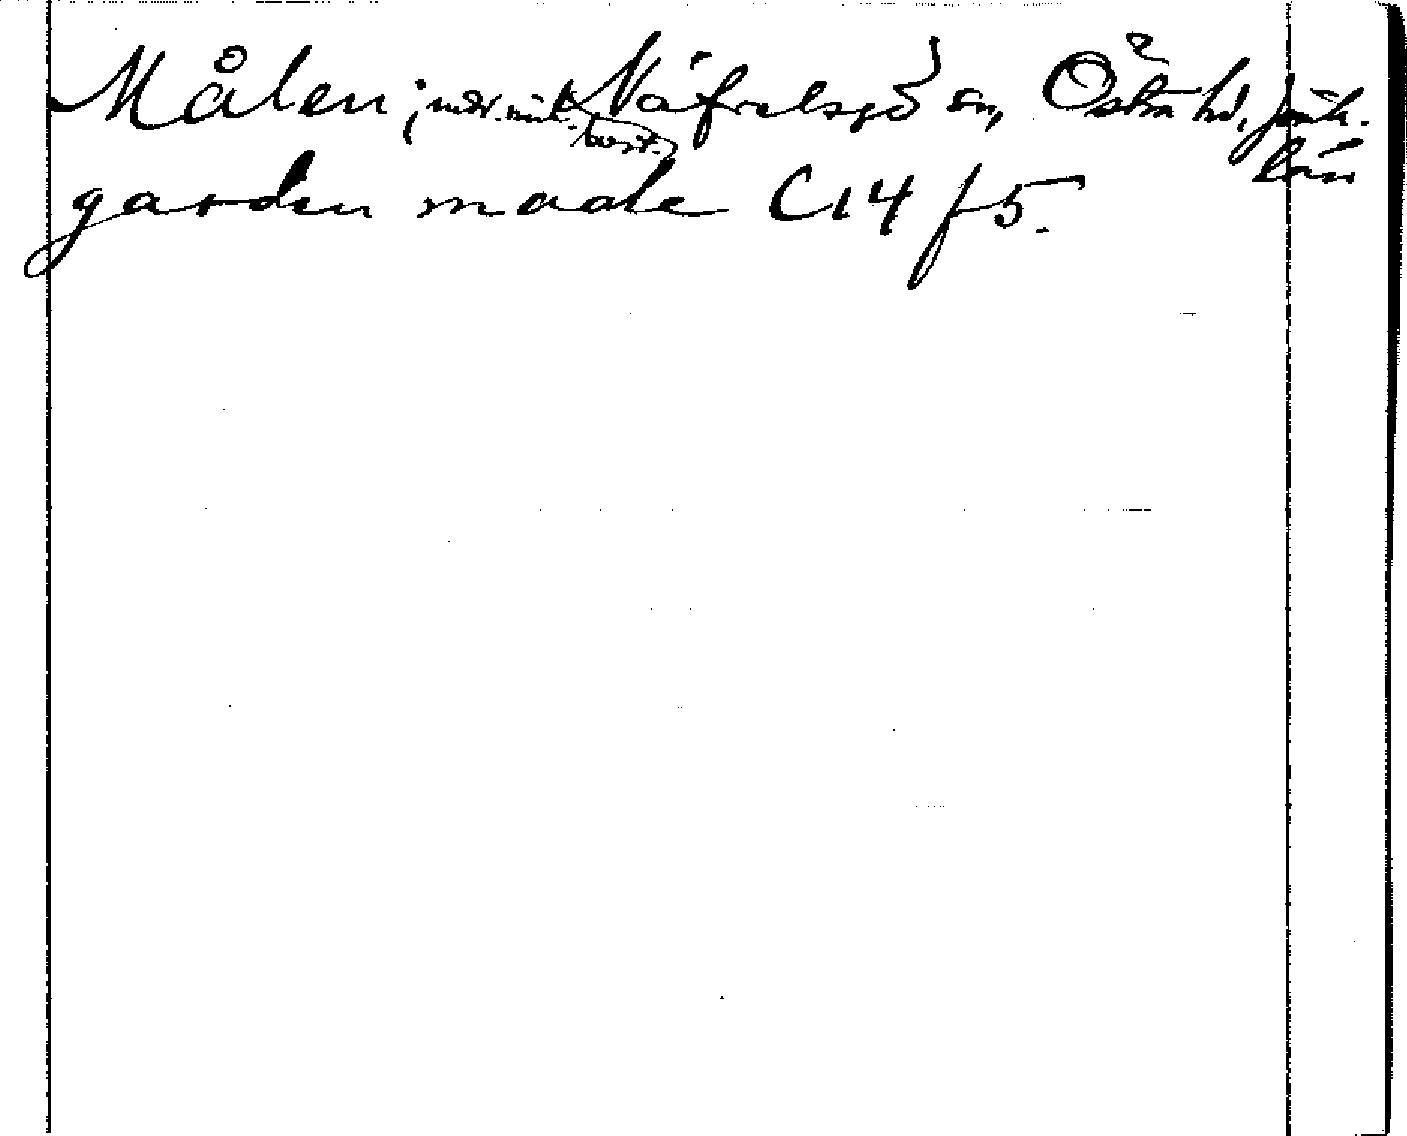 Målen, Näfvelsjö sn, Östra hd, Jönk.
län
garden maale C14 f 5.